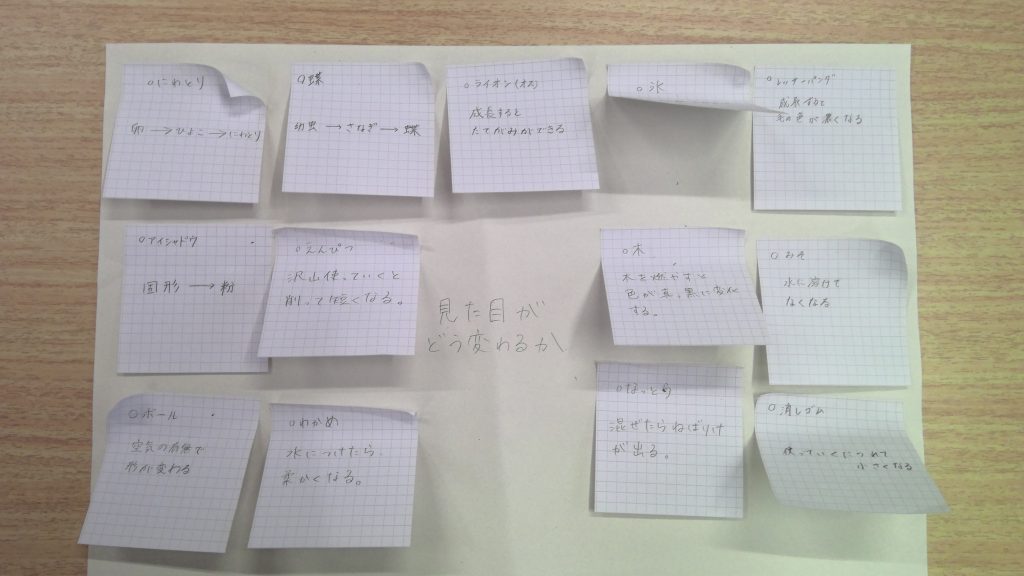 ○にわとり
卵→ひよこ→にわとり
○蝶
幼虫→さなぎ→蝶
○ライオン(オス)
成長すると
たてがみができる
○氷
○レッサーパンダ
成長すると
毛の色が濃くなる
○アイシャドウ
固形→粉
○えんぴつ
沢山使っていくと
削って短くなる。
見た目が
どう変わるか
○木
木を燃やすと
色が真っ黒に変化
する。
○みそ
水に溶けて
なくなる
○ボール
空気の有無で
形が変わる
○わかめ
水につけたら
柔かくなる。
○なっとう
混ぜたらねばりけ
が出る。
○消しゴム
使っていくにつれて
小さくなる